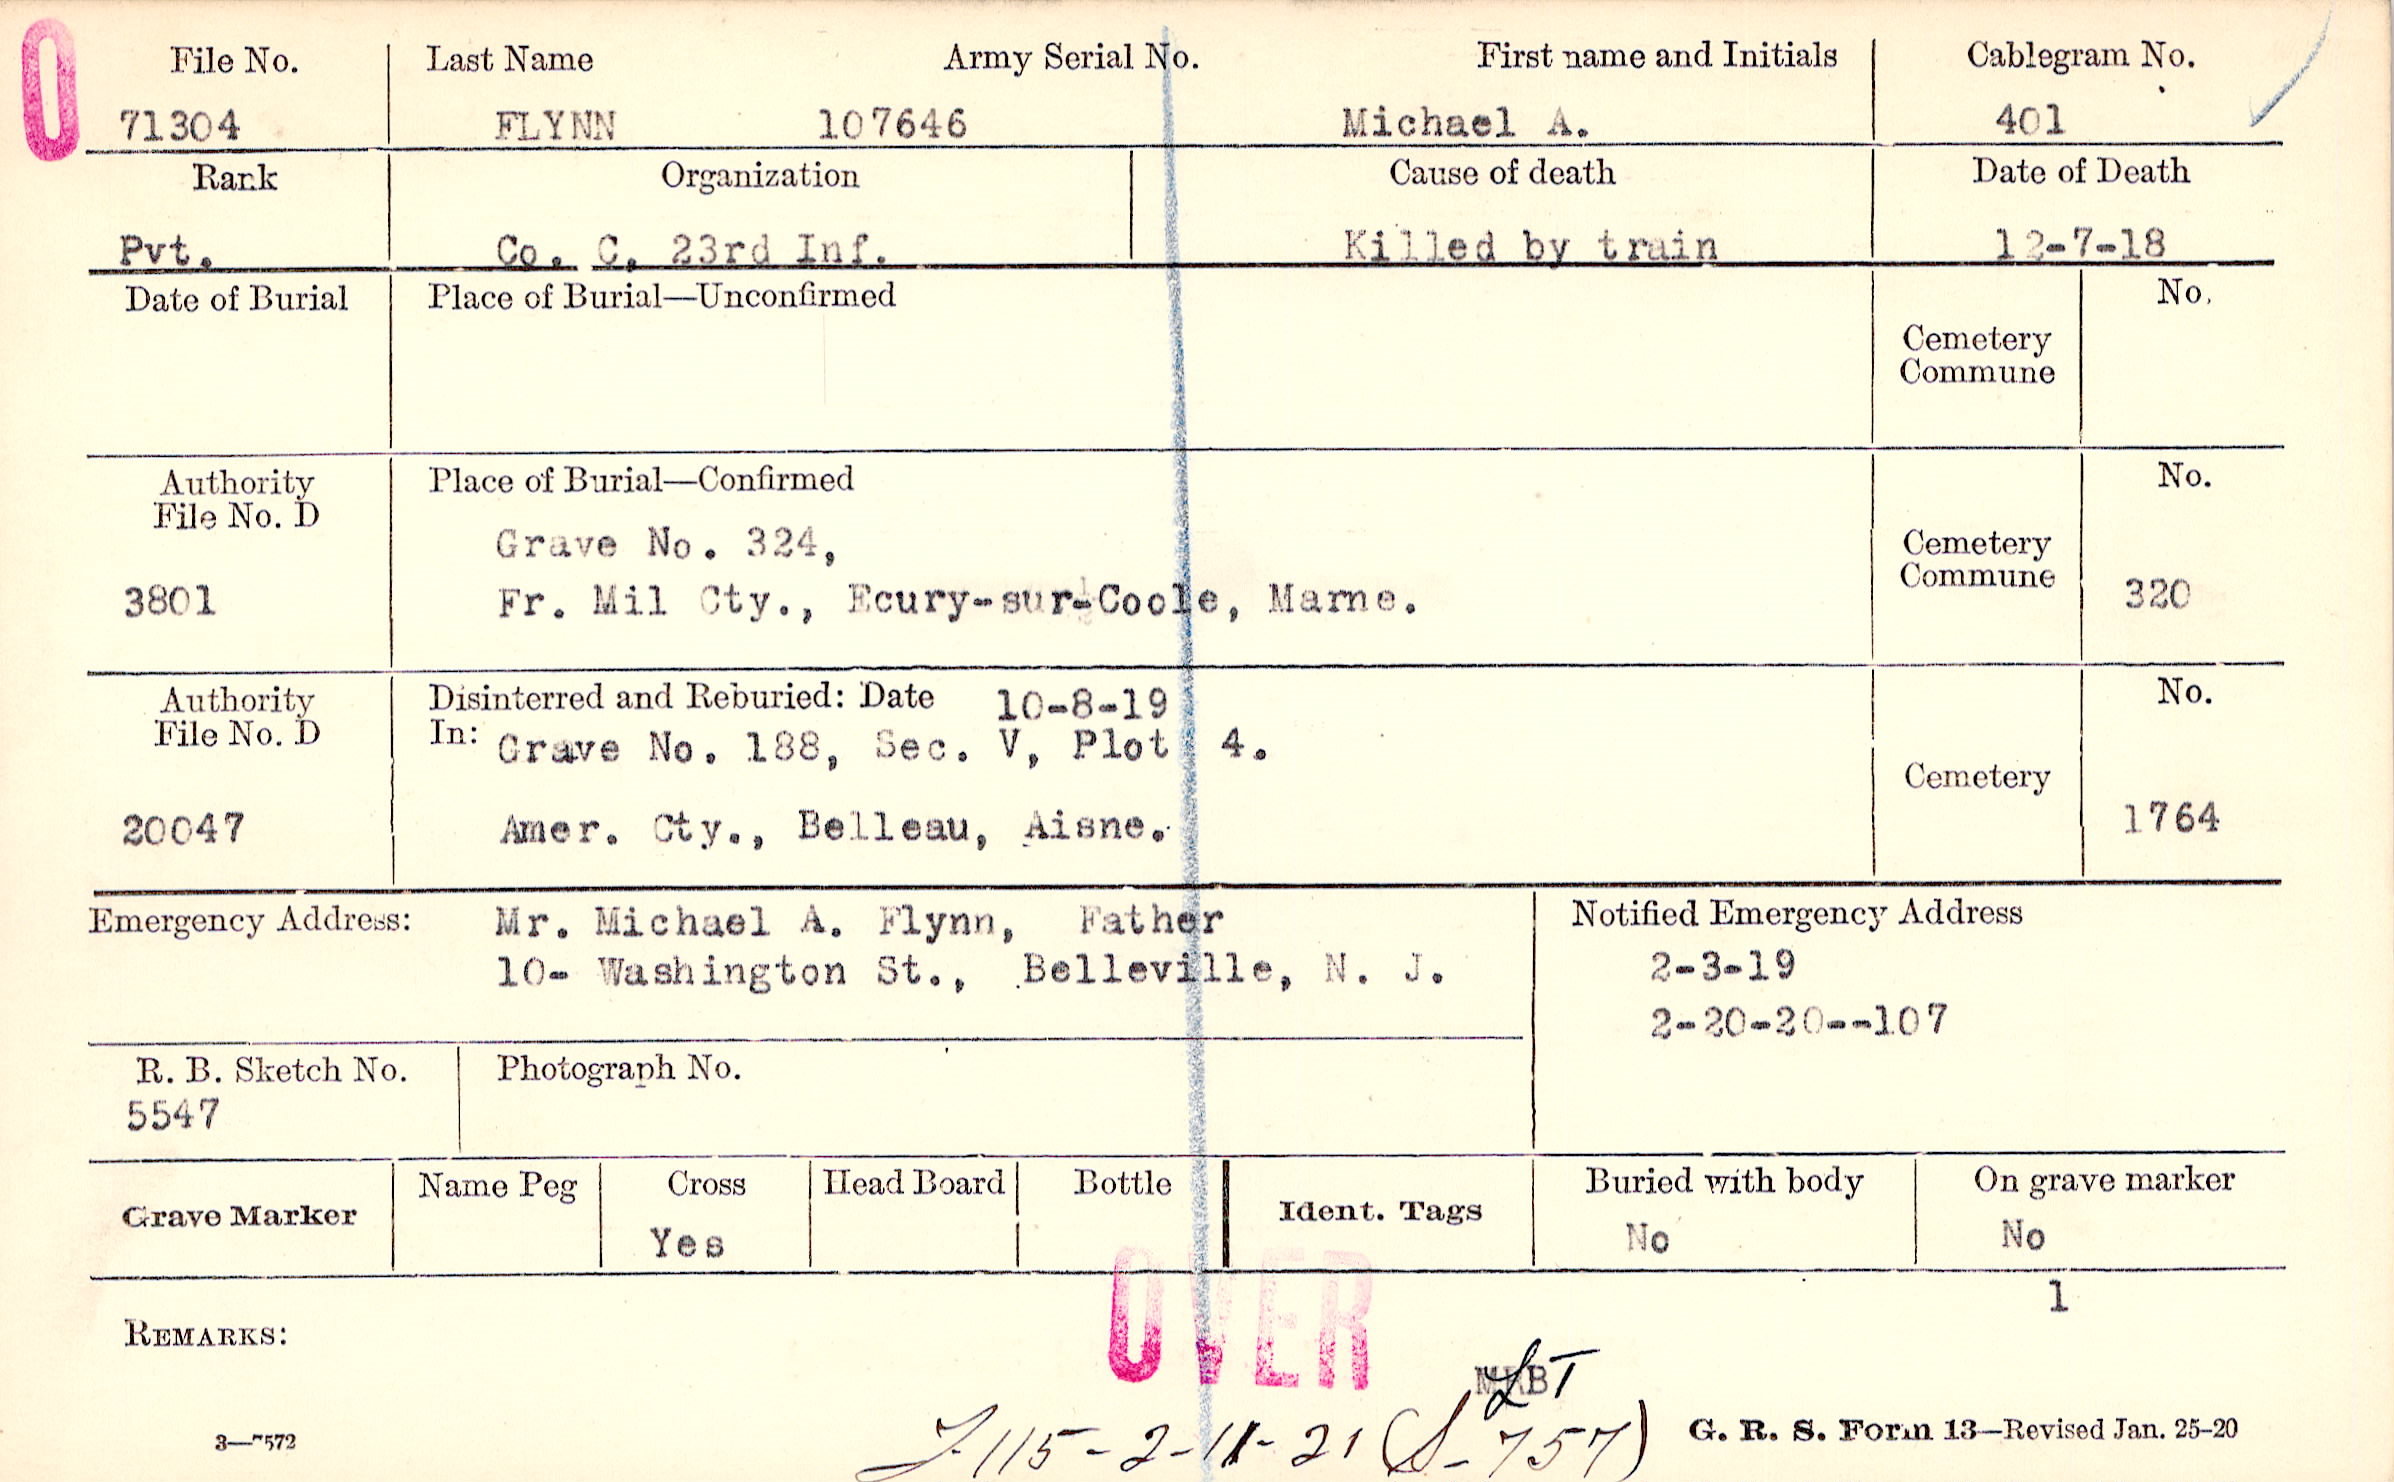 O
File No. Last Name Army Serial No. First name and Initials Cablegram No.
71304 FLYNN 107646 Michael A. 401
Rank Organization Cause of death Date of Death
Pvt. Co. C, 23rd Inf. Killed by train 12-7-18
Date of Burial Place of Burial—Unconfirmed No.
Cemetery
Commune
Authority Place of Burial—Confirmed No.
File No. D
Grave No. 324, Cemetery
Commune
3801 Fr. Mil Cty., Ecury-sur-Coole, Marne. 320
Authority Disinterred and Reburied: Date 10-8-19 No.
File No. D In: Grave No. 188, Sec. V, Plot 4.
Cemetery
20047 Amer. Cty., Belleau, Aisne. 1764
Emergency Address: Mr. Michael A. Flynn, Father Notified Emergency Address
10- Washington St., Belleville, N. J. 2-3-19
2-20-20--107
R. B. Sketch No. Photograph No.
5547
Grave Marker Name Peg Cross Head Board Bottle Ident. Tags Buried with body On grave marker
Yes No No
1
OVER
REMARKS:
LT
115-2-11-21 (S-757)
3—7572 G. R. S. Form 13—Revised Jan. 25-20